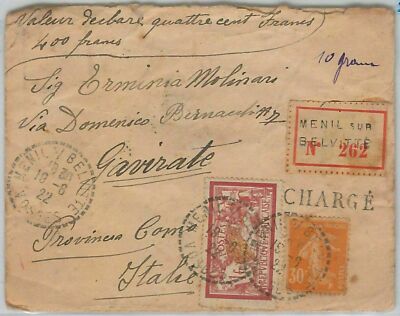 Valeur déclarée quattre cent Francs
400 francs
10 gram
Sig Erminia Molinari
Via Domenico Bernacchi 17
Gavirate
Provincia Como
Italie
MENIL SUR
BELVITTE
N° 262
CHARGÉ
MENIL
BEL
16-8
22
VOSGES
30